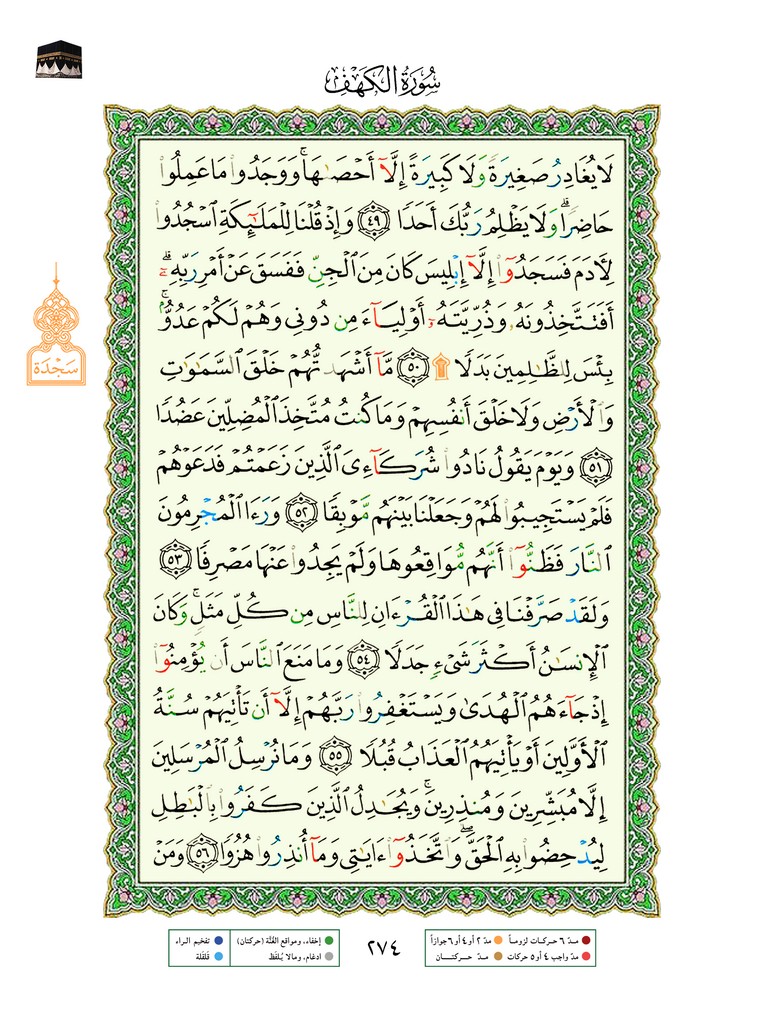 سُورَةُ الكَهْفِ
لَا يُغَادِرُ صَغِيرَةً وَلَا كَبِيرَةً إِلَّآ أَحْصَىٰهَا ۚ وَوَجَدُوا۟ مَا عَمِلُوا۟
حَاضِرًا ۗ وَلَا يَظْلِمُ رَبُّكَ أَحَدًا ﴿٤٩﴾ وَإِذْ قُلْنَا لِلْمَلَـٰٓئِكَةِ ٱسْجُدُوا۟
لِـَٔادَمَ فَسَجَدُوٓا۟ إِلَّآ إِبْلِيسَ كَانَ مِنَ ٱلْجِنِّ فَفَسَقَ عَنْ أَمْرِ رَبِّهِۦٓ ۗ
أَفَتَتَّخِذُونَهُۥ وَذُرِّيَّتَهُۥٓ أَوْلِيَآءَ مِن دُونِى وَهُمْ لَكُمْ عَدُوٌّۢ ۚ
بِئْسَ لِلظَّـٰلِمِينَ بَدَلًا ۩ ﴿٥٠﴾ مَّآ أَشْهَدتُّهُمْ خَلْقَ ٱلسَّمَـٰوَٰتِ
سَجْدَة
وَٱلْأَرْضِ وَلَا خَلْقَ أَنفُسِهِمْ وَمَا كُنتُ مُتَّخِذَ ٱلْمُضِلِّينَ عَضُدًا
﴿٥١﴾ وَيَوْمَ يَقُولُ نَادُوا۟ شُرَكَآءِىَ ٱلَّذِينَ زَعَمْتُمْ فَدَعَوْهُمْ
فَلَمْ يَسْتَجِيبُوا۟ لَهُمْ وَجَعَلْنَا بَيْنَهُم مَّوْبِقًا ﴿٥٢﴾ وَرَءَا ٱلْمُجْرِمُونَ
ٱلنَّارَ فَظَنُّوٓا۟ أَنَّهُم مُّوَاقِعُوهَا وَلَمْ يَجِدُوا۟ عَنْهَا مَصْرِفًا ﴿٥٣﴾
وَلَقَدْ صَرَّفْنَا فِى هَـٰذَا ٱلْقُرْءَانِ لِلنَّاسِ مِن كُلِّ مَثَلٍ ۚ وَكَانَ
ٱلْإِنسَـٰنُ أَكْثَرَ شَىْءٍ جَدَلًا ﴿٥٤﴾ وَمَا مَنَعَ ٱلنَّاسَ أَن يُؤْمِنُوٓا۟
إِذْ جَآءَهُمُ ٱلْهُدَىٰ وَيَسْتَغْفِرُوا۟ رَبَّهُمْ إِلَّآ أَن تَأْتِيَهُمْ سُنَّةُ
ٱلْأَوَّلِينَ أَوْ يَأْتِيَهُمُ ٱلْعَذَابُ قُبُلًا ﴿٥٥﴾ وَمَا نُرْسِلُ ٱلْمُرْسَلِينَ
إِلَّا مُبَشِّرِينَ وَمُنذِرِينَ ۚ وَيُجَـٰدِلُ ٱلَّذِينَ كَفَرُوا۟ بِٱلْبَـٰطِلِ
لِيُدْحِضُوا۟ بِهِ ٱلْحَقَّ ۖ وَٱتَّخَذُوٓا۟ ءَايَـٰتِى وَمَآ أُنذِرُوا۟ هُزُوًا ﴿٥٦﴾ وَمَنْ
مدّ ٦ حركات لزوماً مدّ ٢ أو ٤ أو ٦ جوازاً
مدّ واجب ٤ أو ٥ حركات مدّ حركتان
٢٧٤
إخفاء، ومواقع الغُنَّة (حركتان) تفخيم الراء
ادغام، ومالا يُلفَظ قلقلة